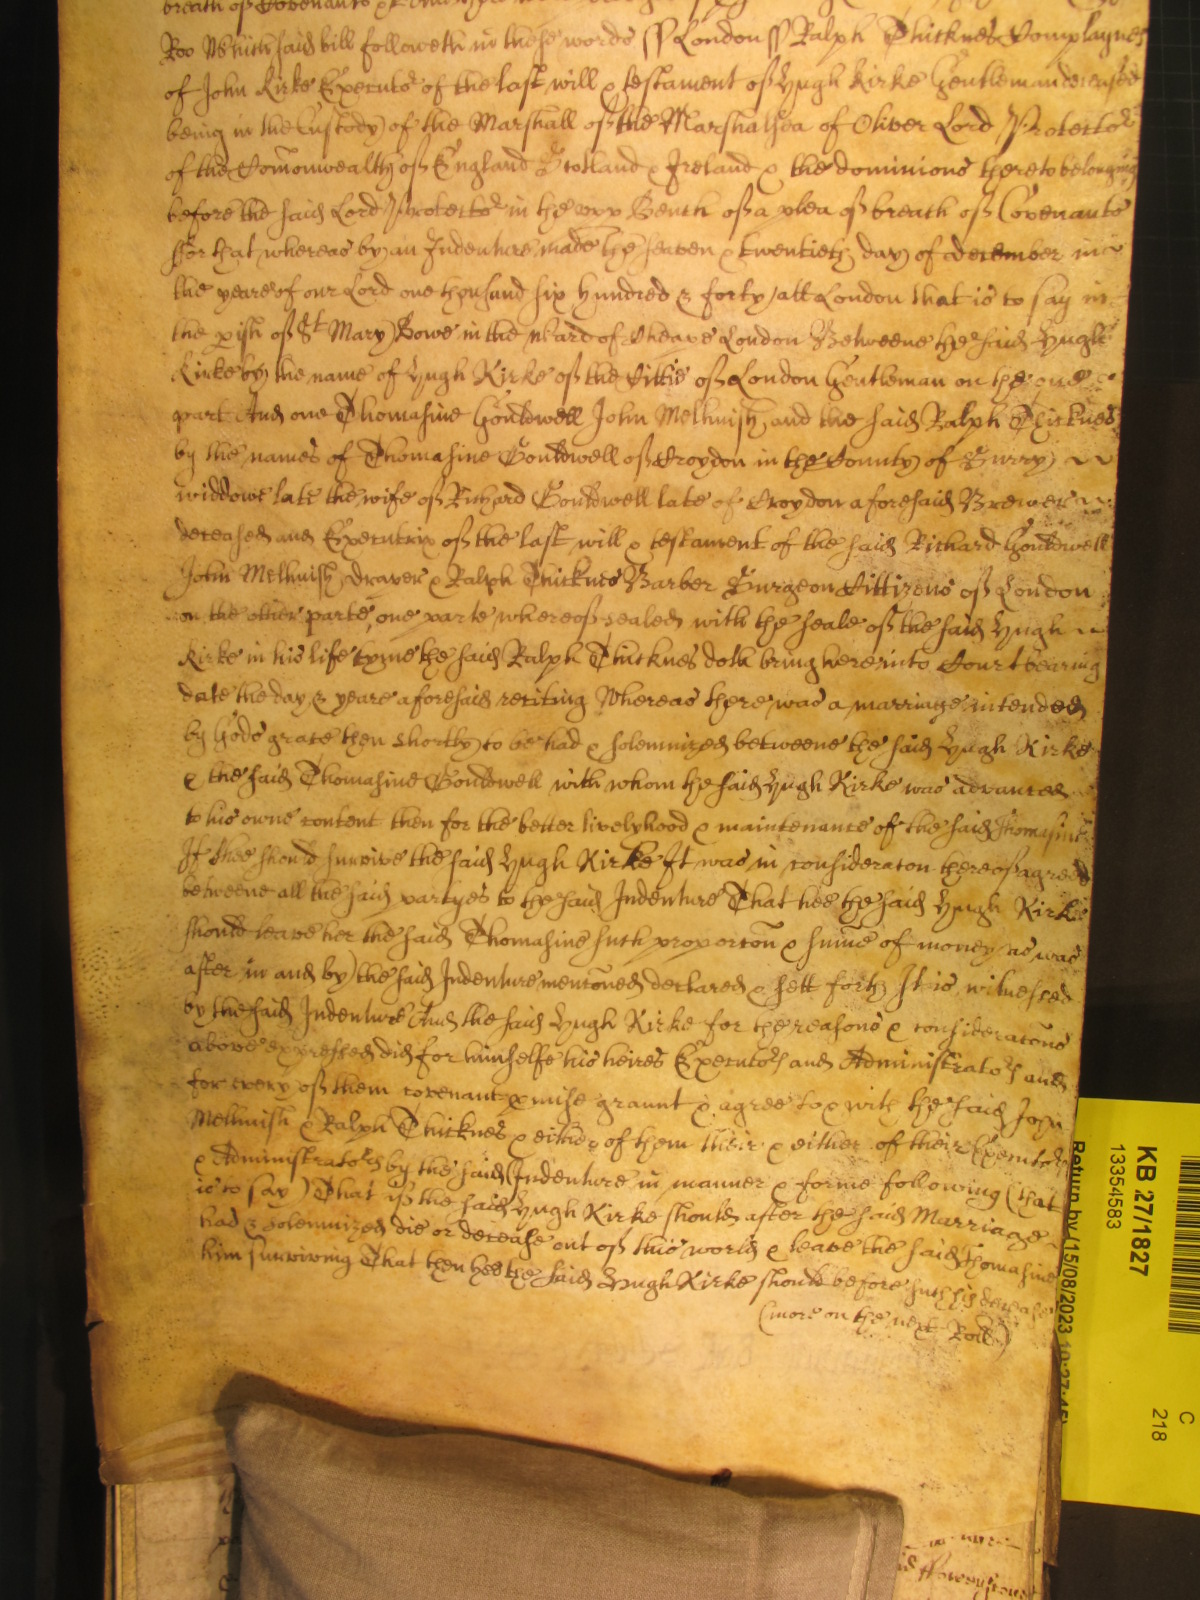 breath of Covenants
Roo Which said bill followeth in these words ss London ss Ralph Thicknes Complaynes
of John Kirke Executor of the last will & testament of Hugh Kirke Gentleman deceased
being in the Custody of the Marshall of the Marshalsea of Oliver Lord Protector
of the Comonwealth of England Scotland & Ireland & the dominions thereto belonging
before the said Lord Protector in the upp Bench of a plea of breach of Covenants
For that whereas by an Indenture made the seaven & twentieth day of december in
the yeare of our Lord one thousand six hundred & forty att London that is to say in
the pish of St Mary Bowe in the Ward of Cheape London Betweene the said Hugh
Kirke by the name of Hugh Kirke of the Cittie of London Gentleman on the one
part And one Thomasine Gouldwell John Melhuish and the said Ralph Thicknes
by the names of Thomasine Gouldwell of Croydon in the County of Surry
widdowe late the wife of Richard Gouldwell late of Croydon aforesaid Brewer
deceased and Executrix of the last will & testament of the said Richard Gouldwell
John Melhuish draper & Ralph Thicknes Barber Surgeon Cittizens of London
on the other parte, one parte whereof sealed with the seale of the said Hugh
Kirke in his life tyme the said Ralph Thicknes doth bring here into Court bearing
date the day & yeare aforesaid reciting Whereas there was a marriage intended
by Gods grace then shortly to be had & solemnized betweene the said Hugh Kirke
& the said Thomasine Gouldwell with whom the said Hugh Kirke was advanced
to his owne content then for the better livelyhood & maintenance of the said Thomasine
If shee should survive the said Hugh Kirke It was in consideracon thereof agreed
betweene all the said partyes to the said Indenture That hee the said Hugh Kirke
should leave her the said Thomasine such proporcon & summe of money as was
after in and by the said Indenture mencioned declared & sett forth It is witnessed
by the said Indenture And the said Hugh Kirke for the reasons & consideracons
above expressed did for himselfe his heires Executors and Administrators and
for every of them covenant pmise graunt & agree to & with the said John
Melhuish & Ralph Thicknes & either of them their & either of their Executors
& Administrators by the said Indenture in manner & forme following (that
is to say) That if the said Hugh Kirke should after the said Marriage
had & solemnized die or decease out of this world & leave the said Thomasine
him surviving That then hee the said Hugh Kirke should before such his decease
(more on the next Roll)
KB 27/1827
13354583
Return by (15/08/2023 10:27:45)
C
218